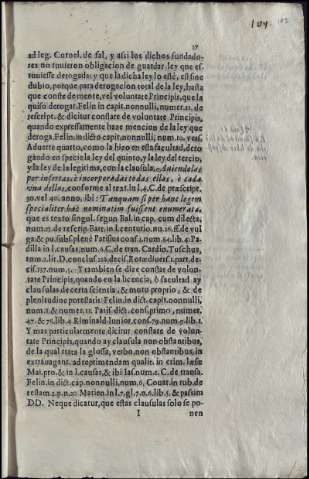 109
17
ad leg. Cornel. de fal, y assi los dichos fundado-
res no tuuieron obligacion de guardar ley que es-
tuuiesse derogada: y que la dicha ley lo esté, es sine
dubio, porque para derogacion total de la ley, basta
que conste de mente, vel voluntate Principis, que la
quiso derogar. Felin in capit. nonnulli, numer. 21. de
rescript. & dicitur constare de voluntate Principis,
quando expressamente haze mencion de la ley que
deroga. Felin. in dicto capit. nonnulli, num. 10. vers.
Aduerte quarto, como la hizo en esta facultad, dero-
gando en specie la ley del quinto, y la ley del tercio,
y la ley de la legitima, con la clausula, Auiendolas
por insertas, è incorporadas todas ellas, è cada
vna dellas, conforme al text. in l. 4. C. de præscript.
30. vel 40. anno, ibi: Tanquam si per hanc legem
specialiter, hac nominatim fuissent enumerata,
que es texto singul. segun Bal. in cap. cum dilecta,
num. de rescrip. Bart. in l. centurio. nu. 16. ff. de vul
ga & pu. subs. plene Parisius cons. 2. num. 54. lib. 4. Pa
dilla in l. causas, num. 6. C. de tran. Cardin. Tuschus,
tom. 2. lit. D. conclus. 228. decis. Rotæ diuers. 1. part. de-
cis. 737. num. Y tambien se dize constar de volun-
tate Principis, quando en la licencia, ò facultad ay
clausulas de certa scientia, & motu proprio, & de
plenitudine potestatis. Felin. in dict. capit. nonnulli,
num. 1. & numer. 12. Paris. dict. cons. primo, numer.
47. & 76. lib. 4. Riminald. Iunior. cons. 79. num. 9. lib. 1.
Y mas particularmente dicitur constare de volun-
tate Principis, quando ay clausula non obstantibus,
de la qual trata la glossa, verbo, non obstantibus, in
extrauagans. ad reprimendam qualit. in crim. læsæ
Mai. pro. & in l. causas, & ibi Ias. num. 4. C. de transa.
Felin. in dict. cap. nonnulli, num. 6. Couar. in rub. de
testam. 2. p. n. 22. Matien. in l. 7. gl. 7. n. 6. lib. 5. & passim
DD. Neque dicatur, que estas clausulas solo se po-
I nen